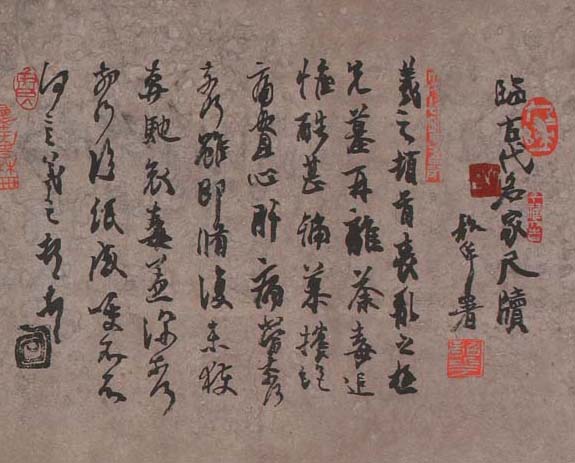 臨古代名家尺牘
署
羲之頓首喪亂之極
先墓再離荼毒追
惟酷甚號慕摧絕
痛貫心肝痛當奈何
奈何雖即脩復未獲
奔馳哀毒益深奈何
奈何臨紙感哽不知
何言羲之頓首頓首